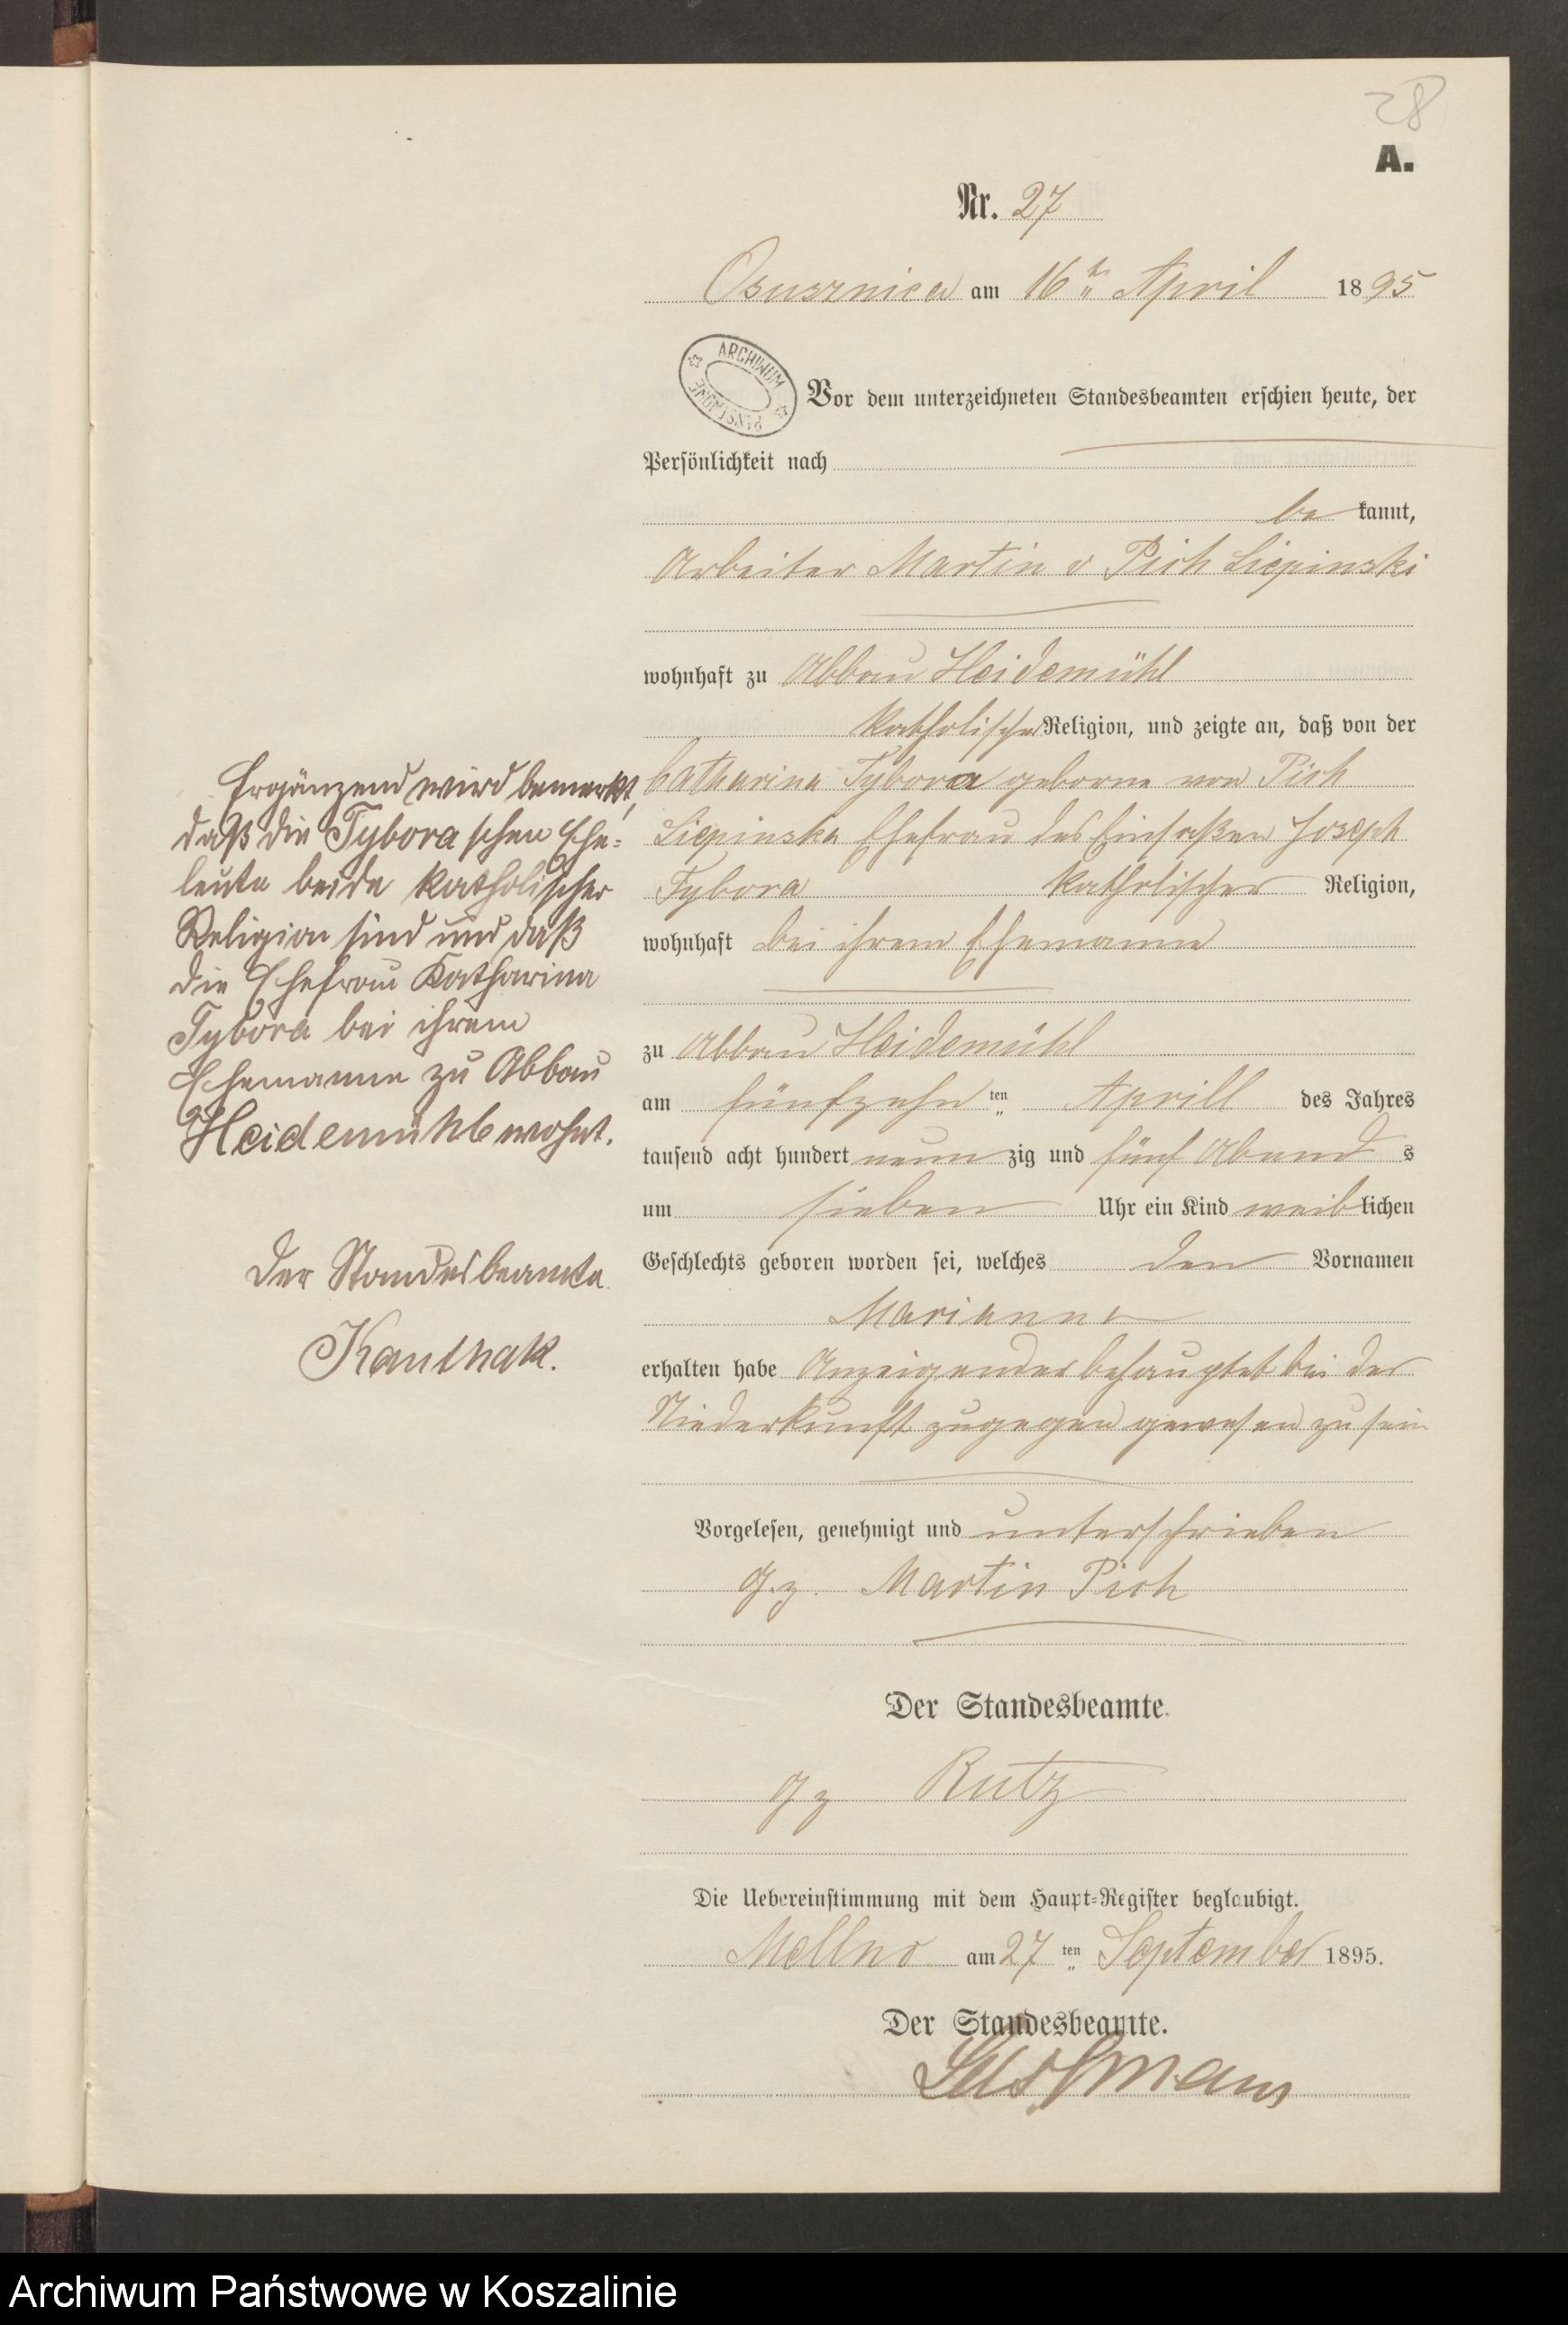 28
A.
Nr. 27
Osusznica am 16ten April 1895
ARCHIWUM PAŃSTWOWE
Vor dem unterzeichneten Standesbeamten erschien heute, der
Persönlichkeit nach
be kannt,
Arbeiter Martin v Pich Liepinski
wohnhaft zu Abbau Heidemühl
katholischer Religion, und zeigte an, daß von der
Catharina Tybora geborne von Pich
Liepinska Ehefrau des Einsaßen Joseph
Tybora katholischer Religion,
wohnhaft bei ihrem Ehemanne
zu Abbau Heidemühl
am fünfzehn ten Aprill des Jahres
tausend acht hundert neun zig und fünf Abend s
um sieben Uhr ein Kind weiblichen
Geschlechts geboren worden sei, welches den Vornamen
Marianna
erhalten habe Anzeigender behauptet bei der
Niederkunft zugegen gewesen zu sein
Vorgelesen, genehmigt und unterschrieben
gz. Martin Pich
Der Standesbeamte.
gz Rutz
Die Uebereinstimmung mit dem Haupt-Register beglaubigt.
Mellno am 27 ten September 1895.
Der Standesbeamte.
Ergänzend wird bemerkt,
daß die Tybora schen Ehe-
leute beide katholischer
Religion sind und daß
die Ehefrau Katharina
Tybora bei ihrem
Ehemanne zu Abbau
Heidemühl wohnt.
Der Standesbeamte
Kauthak.
Archiwum Państwowe w Koszalinie